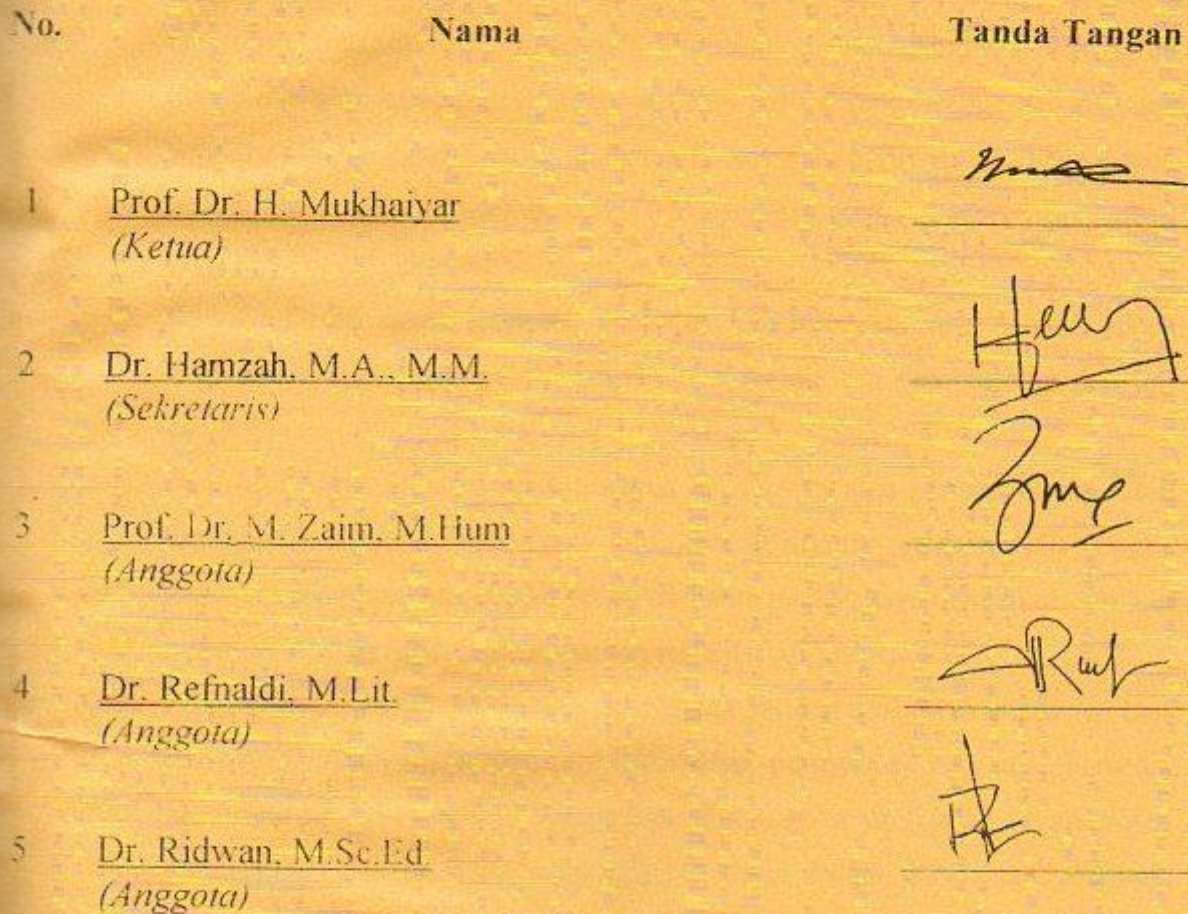 No. Nama Tanda Tangan
1 Prof. Dr. H. Mukhaiyar
(Ketua)
2 Dr. Hamzah, M.A., M.M.
(Sekretaris)
3 Prof. Dr. M. Zaim, M.Hum
(Anggota)
4 Dr. Refnaldi, M.Lit.
(Anggota)
5 Dr. Ridwan, M.Sc.Ed
(Anggota)